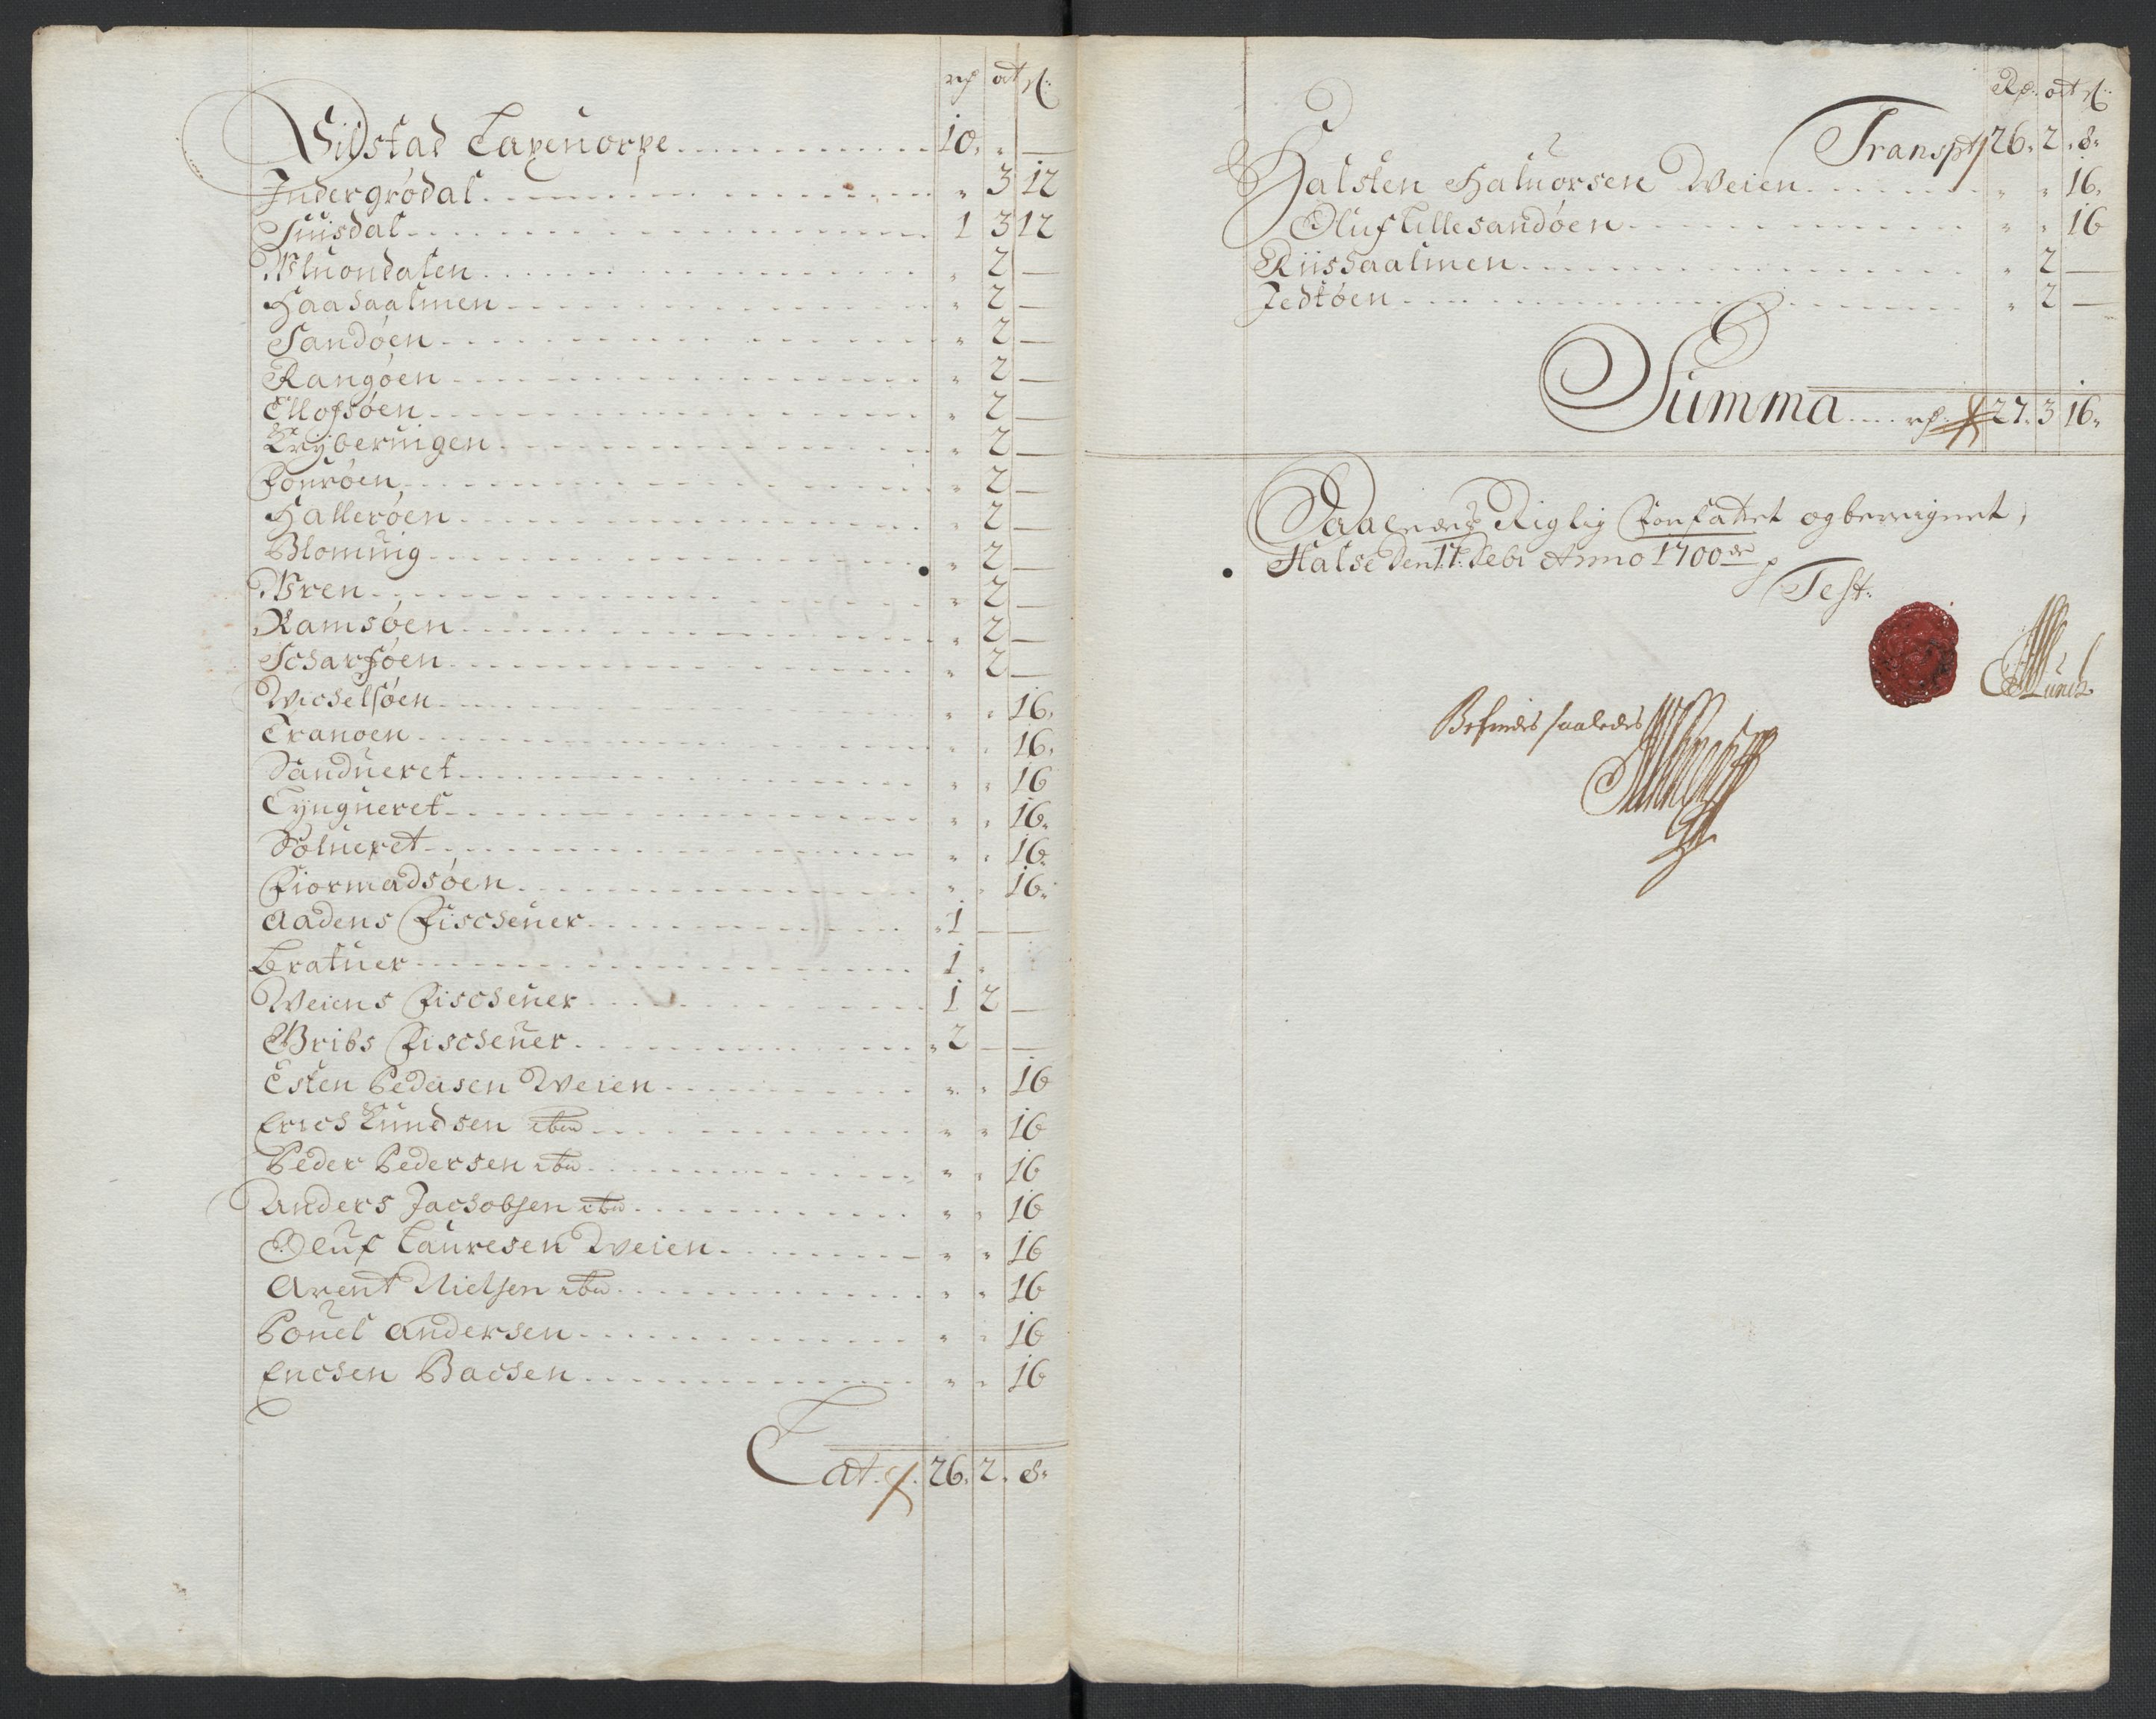 rd ort ſ:
Vilstad Laxeuorpe 10. " —
Indergrødal " 3 12
Suisdal 1 3 12
Aluondalen " 2 —
Haahaalmen " 2 —
Sandøen " 2 —
Rangøen " 2 —
Ellofsøen " 2 —
Krybervigen " 2 —
Fourøen " 2 —
Hallerøen " 2 —
Blomuig " 2 —
Øren " 2 —
Ramsøen " 2 —
Scharsøen " 2 —
Wechelsøen " " 16.
Tranoen " " 16.
Sandueret " " 16
Tyngueret " " 16.
Solueret " " 16.
Fiormadsøen " " 16.
Aadens Fischeuer 1 — —
Bratuer 1 "
Weiens Fischeuer 1 2 —
Gribs Fischeuer 2 — —
Esten Pedersen Weien " " 16
Erich Knudsen ibid " " 16
Peder Pedersen ibid " " 16
Anders Jachobsen ibid " " 16
Oluf Lauresen Weien " " 16
Arent Nielsen ibid " " 16
Pouel Andersen " " 16
Erichsen Bachen " " 16
Lat. 26. 2. 8.
Rd. ort ſ:
Transpt 26. 2. 8.
Halsten Haluorsen Weien " " 16.
Oluf Lillesandøen " " 16
Riishaalmen " 2 —
Jedtøen " 2 —
Summa rd. 27. 3 16.
Saaledes Rigtig Forfattet og beregnet,
Halse Den 17 Febr Anno 1700
Test.
Munch
Befindes saaledes